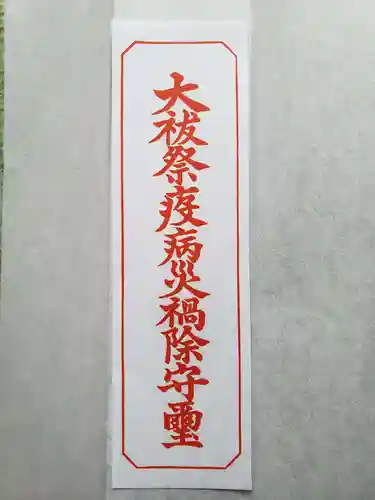 大祓祭疫病災禍除守璽